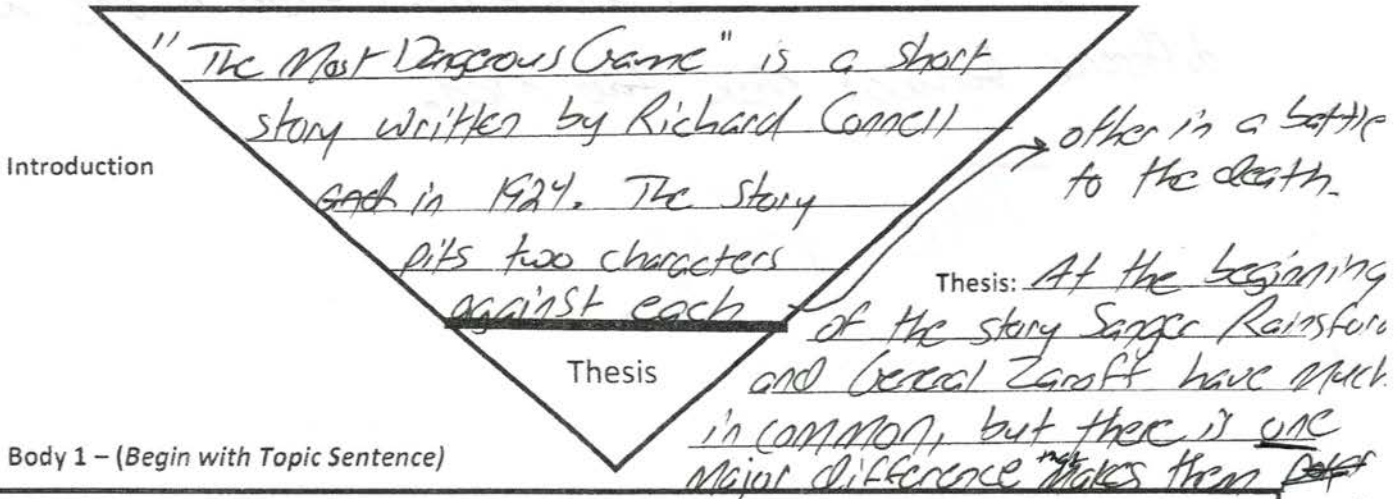 "The Most Dangerous Game" is a short
story written by Richard Connell
and in 1924. The story
pits two characters
against each
other in a battle
to the death.
Introduction
Thesis
Thesis: At the beginning
of the story Sanger Rainsford
and General Zaroff have much
in common, but there is one
major difference that makes them
Body 1 – (Begin with Topic Sentence)